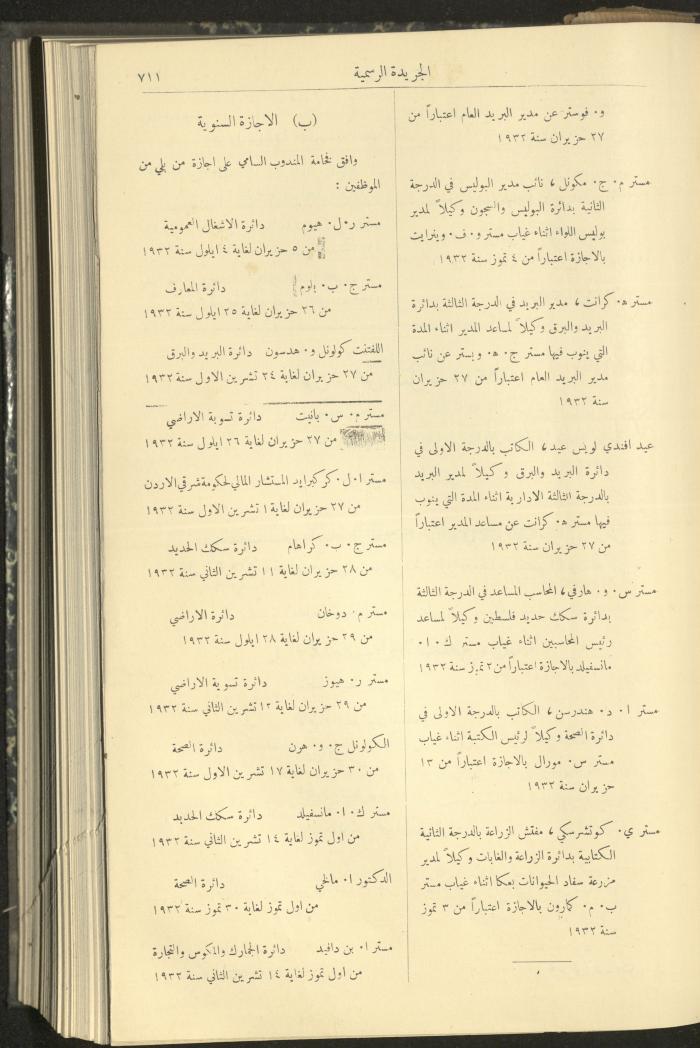 الجريدة الرسمية
٧١١
و. فوستر عن مدير البريد العام اعتباراً من
٢٧ حزيران سنة ١٩٣٢
مستر م. ج. مكونل، نائب مدير البوليس في الدرجة
الثانية بدائرة البوليس والسجون وكيلاً لمدير
بوليس اللواء اثناء غياب مستر و. ف. وينرايت
بالاجازة اعتباراً من ٤ تموز سنة ١٩٣٢.
مستر ه. كرانت، مدير البريد في الدرجة الثالثة بدائرة
البريد والبرق وكيلاً لمساعد المدير اثناء المدة
التي ينوب فيها مستر ج. ه. وبستر عن نائب
مدير البريد العام اعتباراً من ٢٧ حزيران
سنة ١٩٣٢
عيد افندي لويس عيد، الكاتب بالدرجة الاولى في
دائرة البريد والبرق وكيلاً لمدير البريد
بالدرجة الثالثة الادارية اثناء المدة التي ينوب
فيها مستر ه. كرانت عن مساعد المدير اعتباراً
من ٢٧ حزيران سنة ١٩٣٢
مستر س. و. هارفي، المحاسب المساعد في الدرجة الثالثة
بدائرة سكك حديد فلسطين وكيلاً لمساعد
رئيس المحاسبين اثناء غياب مستر ك. ا.
مانسفيلد بالاجازة اعتباراً من ٢ تموز سنة ١٩٣٢
مستر ا. د. هندرسن، الكاتب بالدرجة الاولى في
دائرة الصحة وكيلاً لرئيس الكتبة اثناء غياب
مستر س. مورال بالاجازة اعتباراً من ١٣
حزيران سنة ١٩٣٢
مستر ي. كوتشرسكي، مفتش الزراعة بالدرجة الثانية
الكتابية بدائرة الزراعة والغابات وكيلاً لمدير
مزرعة سفاد الحيوانات بعكا اثناء غياب مستر
ب. م. كارون بالاجازة اعتباراً من ٣ تموز
سنة ١٩٣٢
(ب) الاجازة السنوية
وافق فخامة المندوب السامي على اجازة من يلي من
الموظفين :
مستر ر. ل. هيوم دائرة الاشغال العمومية
من ٥ حزيران لغاية ٤ ايلول سنة ١٩٣٢
مستر ج. ب. بلوم دائرة المعارف
من ٢٦ حزيران لغاية ٢٥ ايلول سنة ١٩٣٢
اللفتنت كولونل و. هدسون دائرة البريد والبرق
من ٢٧ حزيران لغاية ٢٤ تشرين الاول سنة ١٩٣٢
مستر م. س. بانيت دائرة تسوية الاراضي
من ٢٧ حزيران لغاية ٢٦ ايلول سنة ١٩٣٢
مستر ا. ل. كركبرايد المستشار المالي لحكومة شرقي الاردن
من ٢٧ حزيران لغاية ١ تشرين الاول سنة ١٩٣٢
مستر ج. ب. كراهام دائرة سكك الحديد
من ٢٨ حزيران لغاية ١١ تشرين الثاني سنة ١٩٣٢
مستر م. دوخان دائرة الاراضي
من ٢٩ حزيران لغاية ٢٨ ايلول سنة ١٩٣٢
مستر ر. هيوز دائرة تسوية الاراضي
من ٢٩ حزيران لغاية ١٢ تشرين الثاني سنة ١٩٣٢
الكولونل ج. و. هرن دائرة الصحة
من ٣٠ حزيران لغاية ١٧ تشرين الاول سنة ١٩٣٢
مستر ك. ا. مانسفيلد دائرة سكك الحديد
من اول تموز لغاية ١٤ تشرين الثاني سنة ١٩٣٢
الدكتور ا. مالخي دائرة الصحة
من اول تموز لغاية ٣٠ تموز سنة ١٩٣٢
مستر ا. بن دافيد دائرة الجمارك والمكوس والتجارة
من اول تموز لغاية ١٤ تشرين الثاني سنة ١٩٣٢